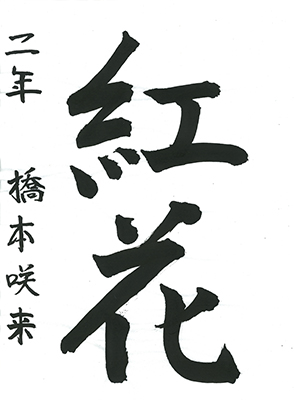 紅花
二年 橋本咲来